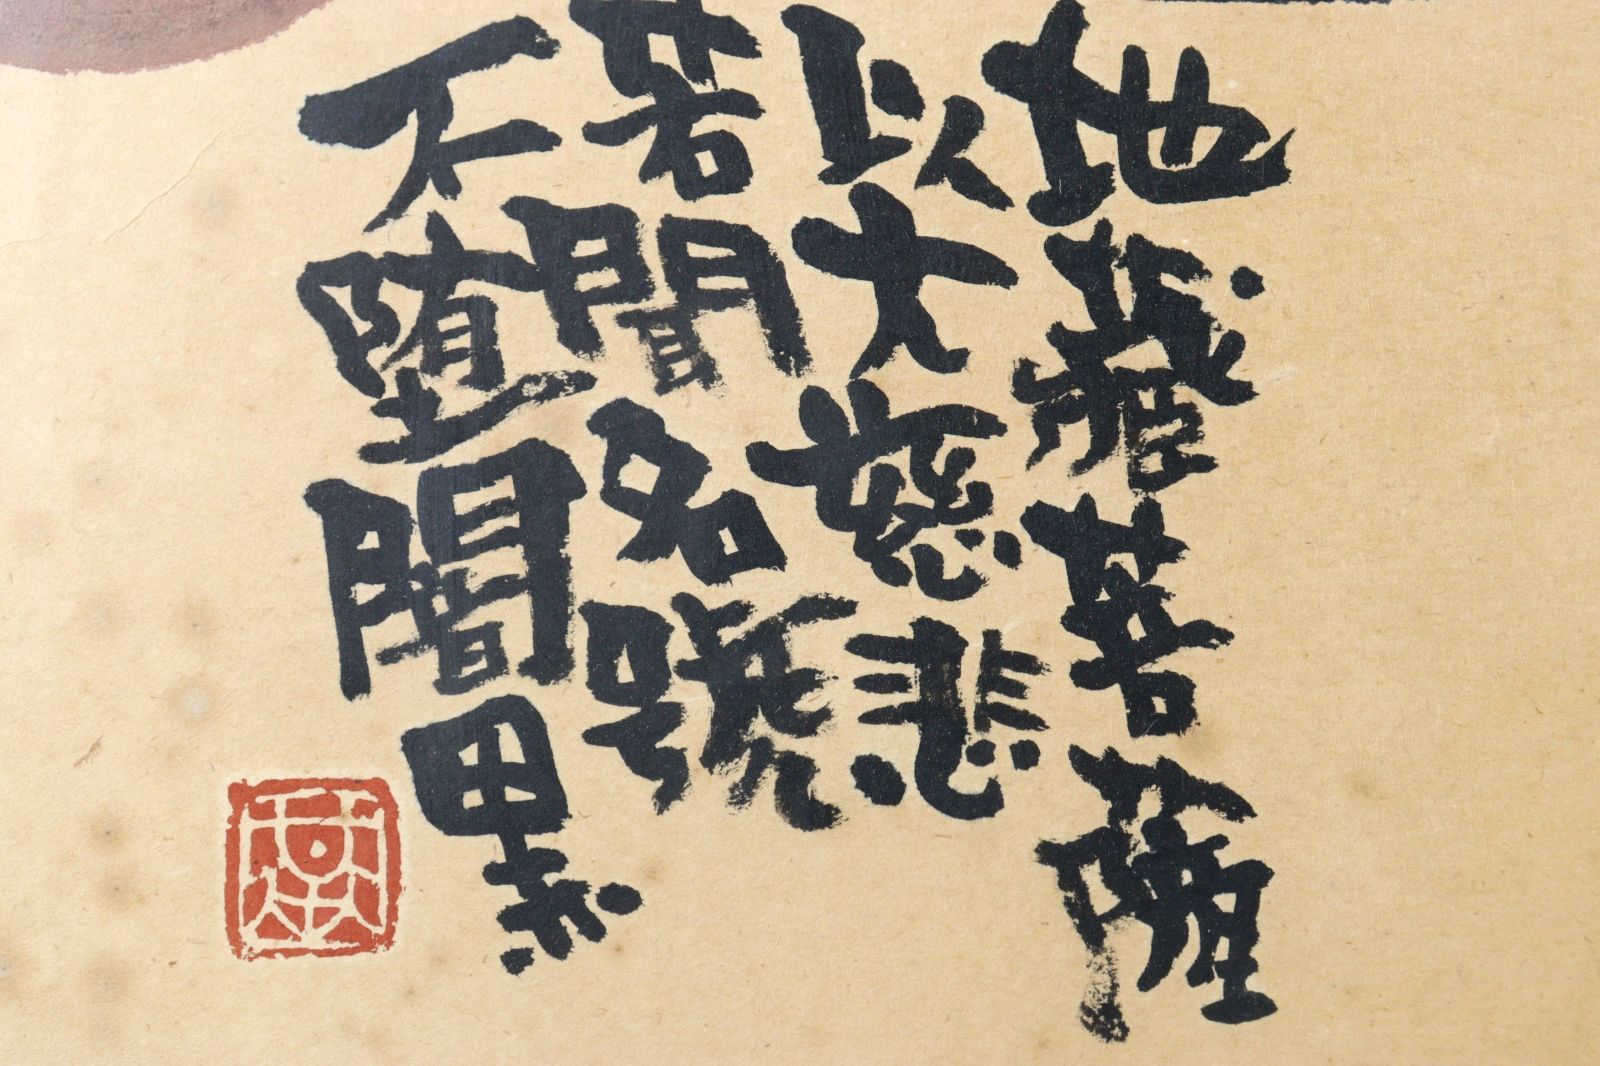 地藏菩薩
以大慈悲
若聞名號
不堕闇黒